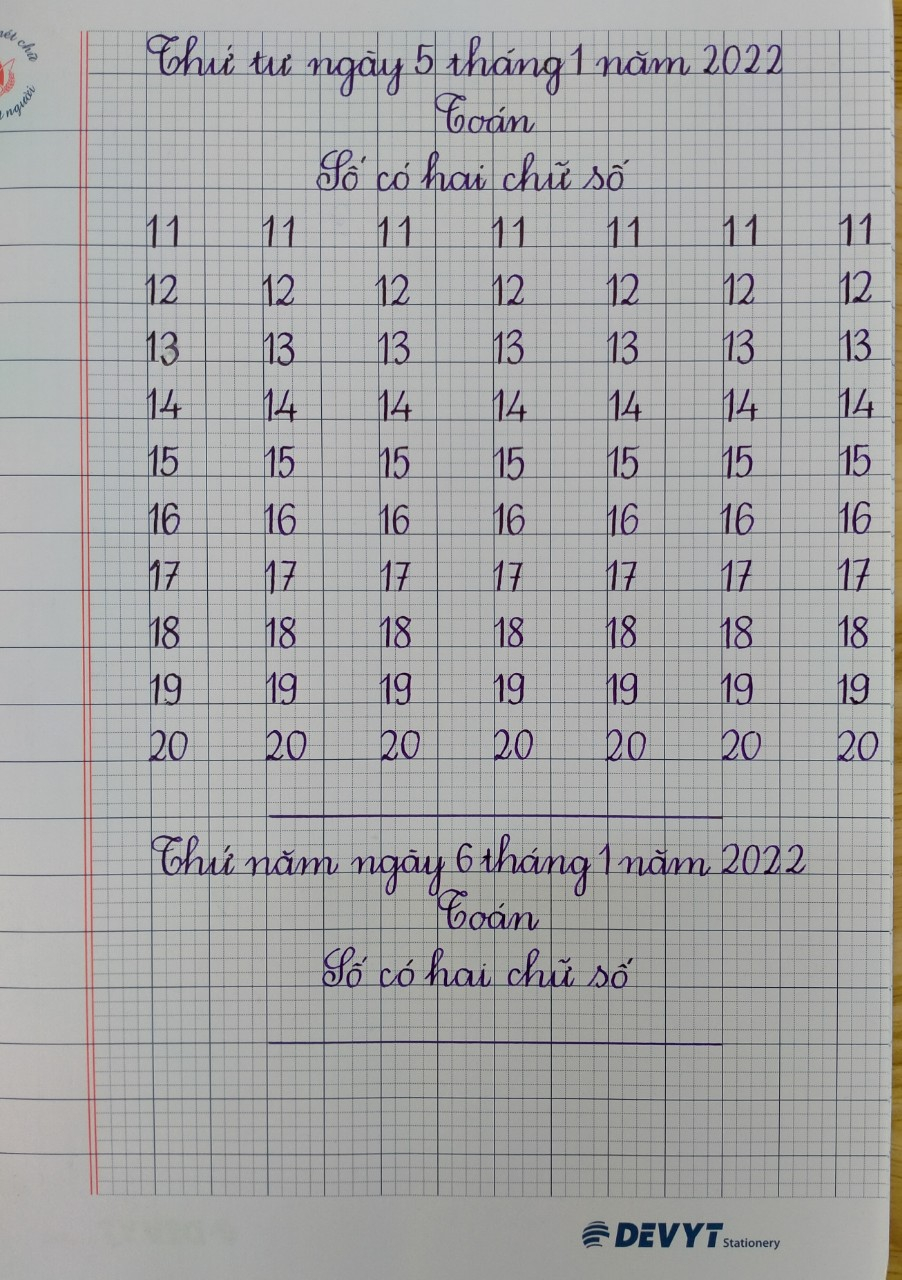 nét chữ
người
Thứ tư ngày 5 tháng 1 năm 2022
Toán
Số có hai chữ số
11 11 11 11 11 11 11
12 12 12 12 12 12 12
13 13 13 13 13 13 13
14 14 14 14 14 14 14
15 15 15 15 15 15 15
16 16 16 16 16 16 16
17 17 17 17 17 17 17
18 18 18 18 18 18 18
19 19 19 19 19 19 19
20 20 20 20 20 20 20
Thứ năm ngày 6 tháng 1 năm 2022
Toán
Số có hai chữ số
DEVYT Stationery